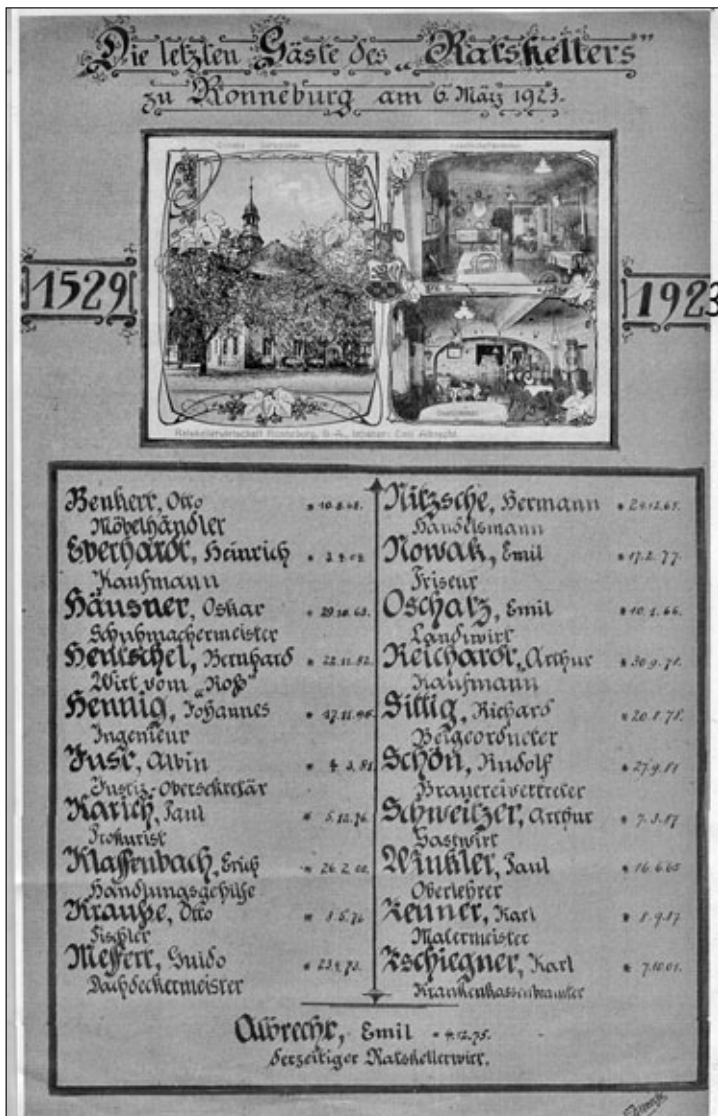 Die letzten Gäste des „Ratskellers"
zu Ronneburg am 6. März 1923.
1529
1923
Ratskellerwirtschaft Ronneburg, S.-A., Inhaber: Albrecht
Benkert, Otto
Möbelhändler
Eberhardt, Heinrich
Kaufmann
Häusner, Oskar * 29.10.63.
Schuhmachermeister
Hentschel, Bernhard * 22.11.82.
Wirt vom „Roß"
Hennig, Johannes * 17.11.96.
Ingenieur
Just, Albin * 4.3.81.
Justiz-Obersekretär
Karich, Paul * 5.12.76.
Prokurist
Klaffenbach, Erich * 26.2.00.
Handlungsgehilfe
Krauße, Otto * 1.5.76
Tischler
Meffert, Guido
Dachdeckermeister
Nitzsche, Hermann
Handelsmann
Nowak, Emil * 17.2.77.
Friseur
Oschatz, Emil * 10.1.66.
Landwirt
Reichardt, Arthur * 30.9.78.
Kaufmann
Sittig, Richard * 20.1.78.
Beigeordneter
Schön, Rudolf * 27.9.81
Brauereivertreter
Schweitzer, Arthur * 7.3.87
Gastwirt
Winkler, Paul * 16.6.65
Oberlehrer
Zenner, Karl * 1.9.87
Malermeister
Zschiegner, Karl * 7.10.01.
Krankenkassenbeamter
Albrecht, Emil * 4.12.75.
derzeitiger Ratskellerwirt.